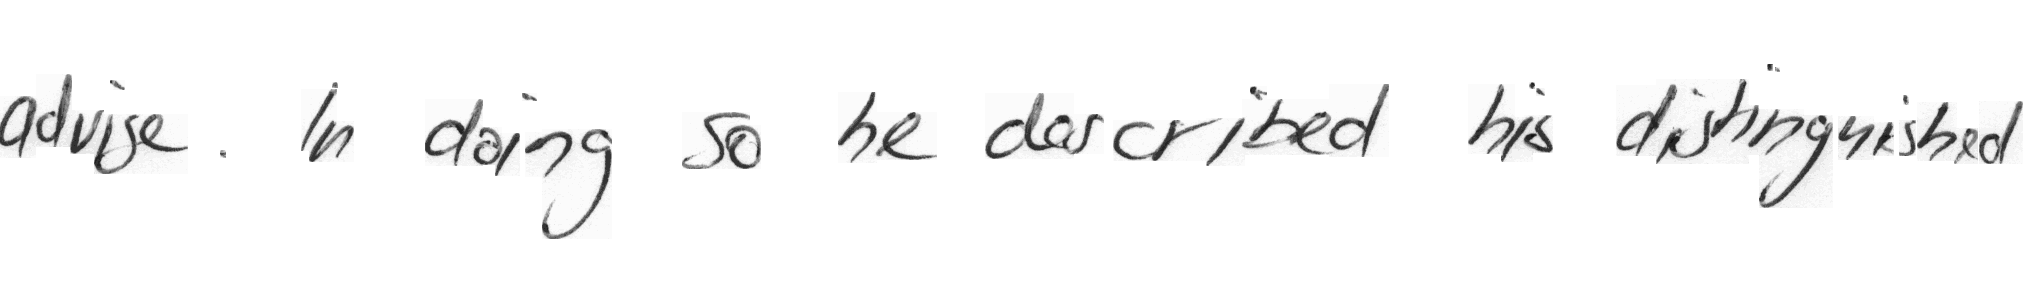 advise. In doing so he described his distinguished